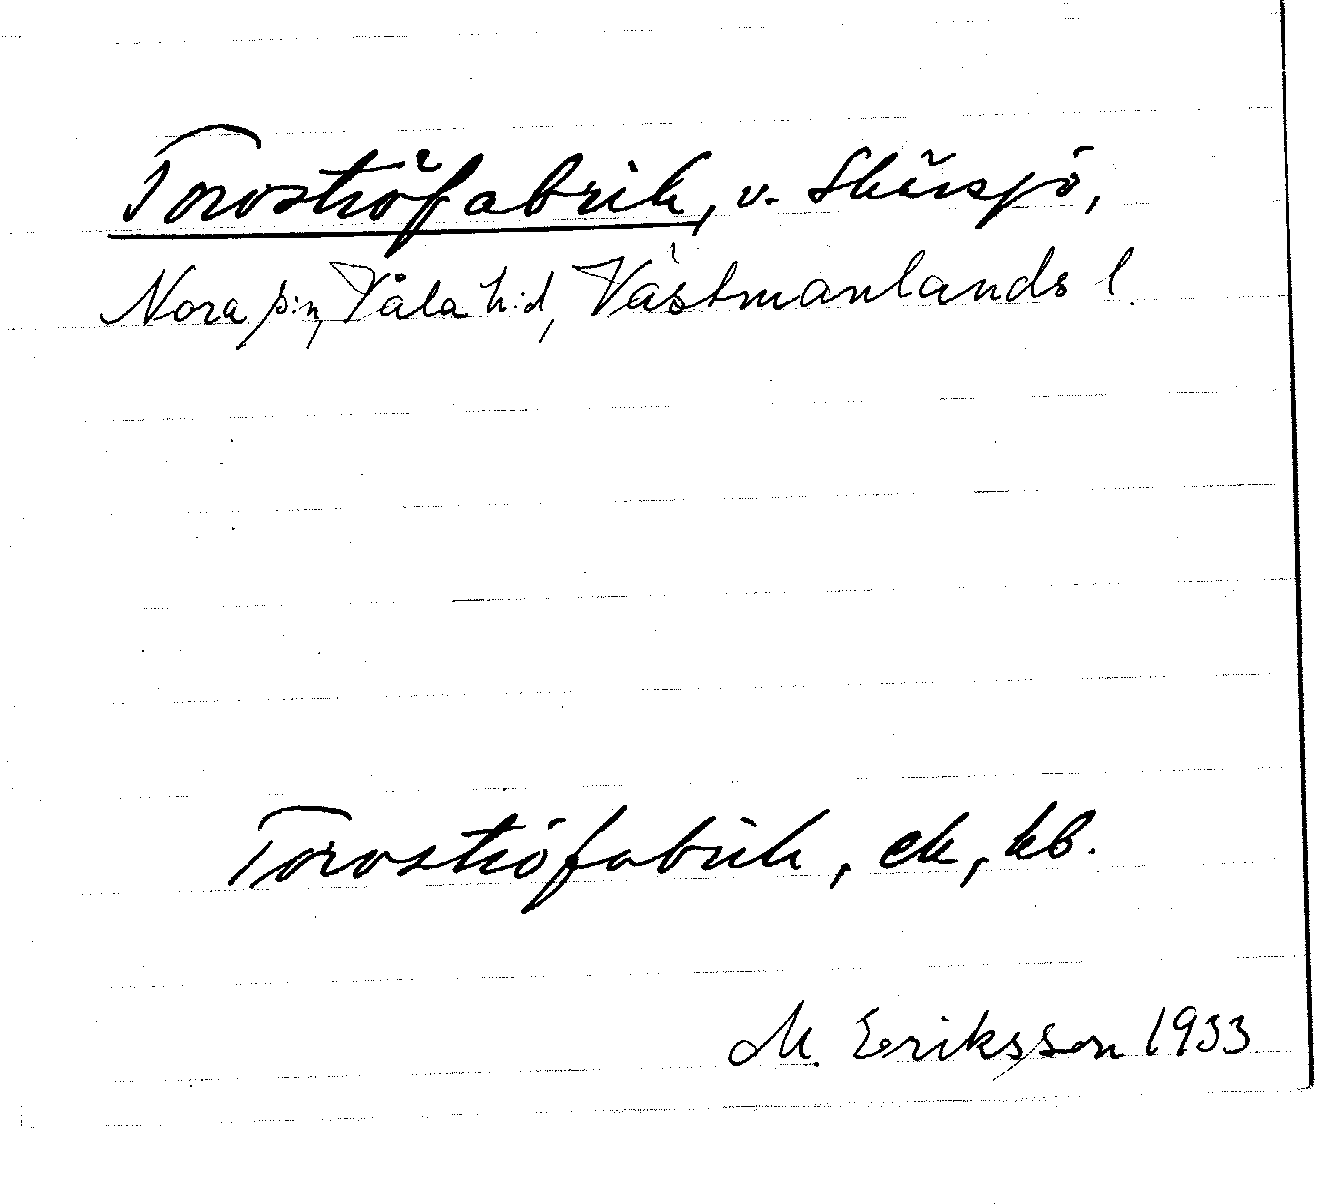 Torvströfabrik, v. Skärsjö,
Nora s:n, Våla h:d, Västmanlands l.
Torvströfabrik, ek, kb.
M. Eriksson 1933